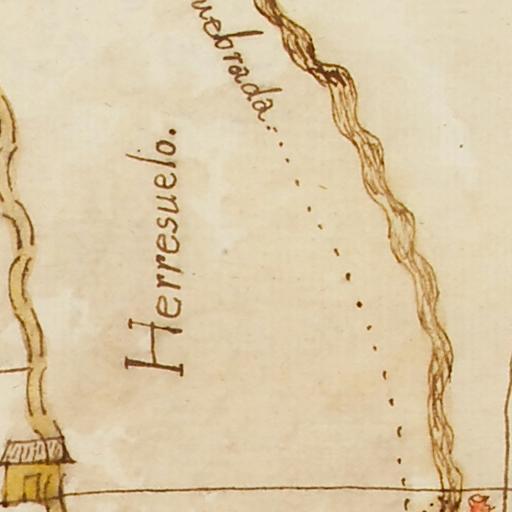 uebrada
Herresuelo.